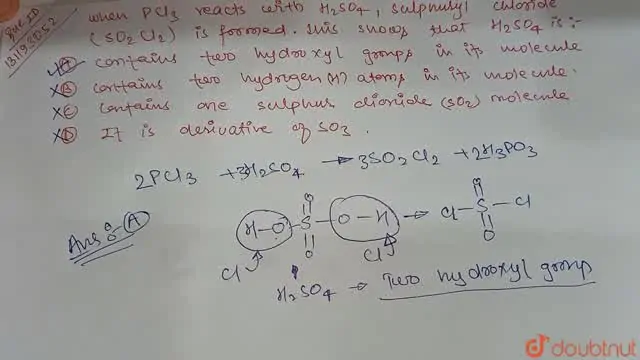 Que ID
131195052
when PCl3 reacts with H2SO4, sulphuryl chloride
(SO2Cl2) is formed. This shows that H2SO4 is :-
(A) contains two hydroxyl groups in its molecule
X(B) contains two hydrogen (H) atoms in its molecule.
X(C) contains one sulphur dioxide (SO2) molecule
X(D) It is derivative of SO3.
2PCl3 + 3H2SO4 → 3SO2Cl2 + 2H3PO3
Ans :- (A)
O O
H-O-S-O-H → Cl-S-Cl
O O
Cl Cl
H2SO4 → Two hydroxyl groups
doubtnut